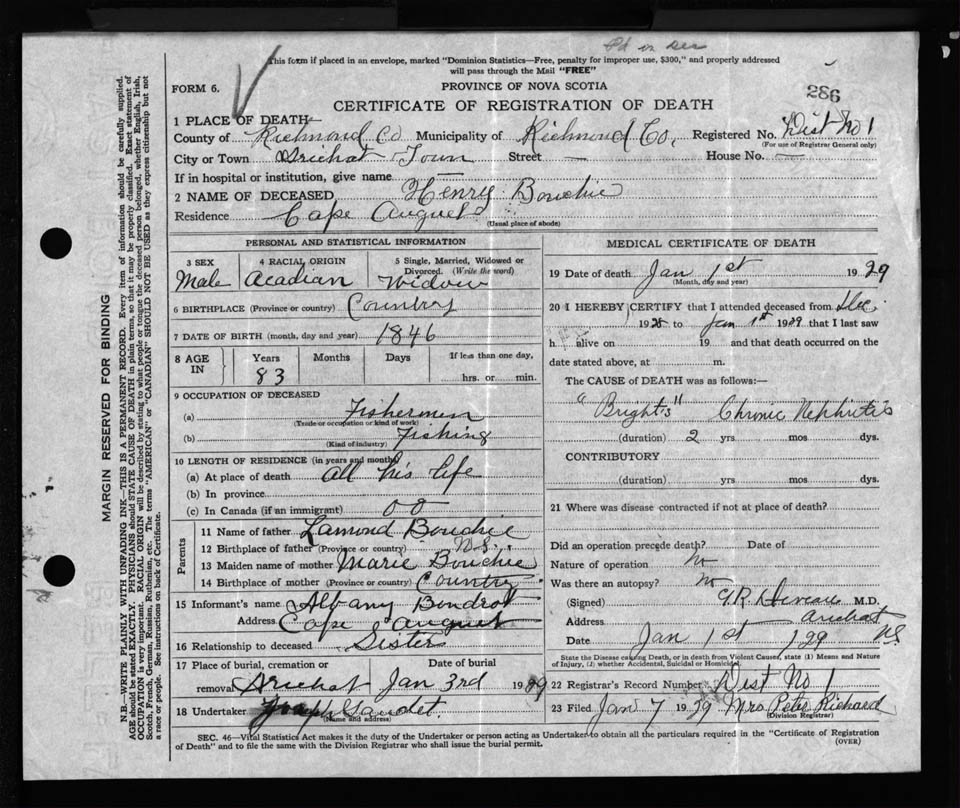 Pd in Dec
This form if placed in an envelope, marked "Dominion Statistics—Free, penalty for improper use, $300," and properly addressed
will pass through the Mail "FREE"
FORM 6. PROVINCE OF NOVA SCOTIA 286
CERTIFICATE OF REGISTRATION OF DEATH
1 PLACE OF DEATH
County of Richmond Co Municipality of Richmond Co. Registered No. Dist No 1
(For use of Registrar General only)
City or Town Arichat Town Street — House No. —
If in hospital or institution, give name —
2 NAME OF DECEASED Henry Bouchie
Residence Cape Auguet
(Usual place of abode)
PERSONAL AND STATISTICAL INFORMATION
3 SEX 4 RACIAL ORIGIN 5 Single, Married, Widowed or
Divorced. (Write the word)
Male Acadian Widow
6 BIRTHPLACE (Province or country) Country
7 DATE OF BIRTH (month, day and year) 1846
8 AGE IN Years Months Days If less than one day,
83 hrs. or min.
9 OCCUPATION OF DECEASED
(a) Fishermen
(Trade or occupation or kind of work)
(b) Fishing
(Kind of industry)
10 LENGTH OF RESIDENCE (in years and months)
(a) At place of death all his life
(b) In province
(c) In Canada (if an immigrant) 0 0
Parents
11 Name of father Lamond Bouchie
12 Birthplace of father (Province or country) N.S.
13 Maiden name of mother Marie Bouchie
14 Birthplace of mother (Province or country) Country
15 Informant's name Albany Boudrot
Address Cape Auguet
16 Relationship to deceased Sister
17 Place of burial, cremation or Date of burial
removal Arichat Jan 3rd 1929
18 Undertaker Gaudet
(Name and address)
MEDICAL CERTIFICATE OF DEATH
19 Date of death Jan 1st 1929
(Month, day and year)
20 I HEREBY CERTIFY that I attended deceased from Dec
1928 to Jan 1st 1929 that I last saw
h alive on 19 and that death occurred on the
date stated above, at m.
The CAUSE of DEATH was as follows:—
"Bright's" Chronic Nephritis
(duration) 2 yrs. mos. dys.
CONTRIBUTORY
(duration) yrs. mos. dys.
21 Where was disease contracted if not at place of death?
Did an operation precede death? Date of
Nature of operation No
Was there an autopsy? No
(Signed) M.D.
Address Arichat
Date Jan 1st 129 NS
State the Disease causing Death, or in death from Violent Causes, state (1) Means and Nature
of Injury, (2) whether Accidental, Suicidal or Homicidal.
22 Registrar's Record Number Dist No 1
23 Filed Jan 7 1929 Mrs. Peter Richard
(Division Registrar)
SEC. 46—Vital Statistics Act makes it the duty of the Undertaker or person acting as Undertaker to obtain all the particulars required in the "Certificate of Registration
of Death" and to file the same with the Division Registrar who shall issue the burial permit. (OVER)
MARGIN RESERVED FOR BINDING
N.B.—WRITE PLAINLY WITH UNFADING INK—THIS IS A PERMANENT RECORD. Every item of information should be carefully supplied.
AGE should be stated EXACTLY. PHYSICIANS should STATE CAUSE OF DEATH in plain terms, so that it may be properly classified. Exact statement of
OCCUPATION is very important. RACIAL ORIGIN will be described by stating to what people or tongue the deceased person belonged, whether English, Irish,
Scotch, French, German, Russian, Ruthenian, etc. The terms "AMERICAN" or "CANADIAN" SHOULD NOT BE USED as they express citizenship but not
a race or people. See instructions on back of Certificate.